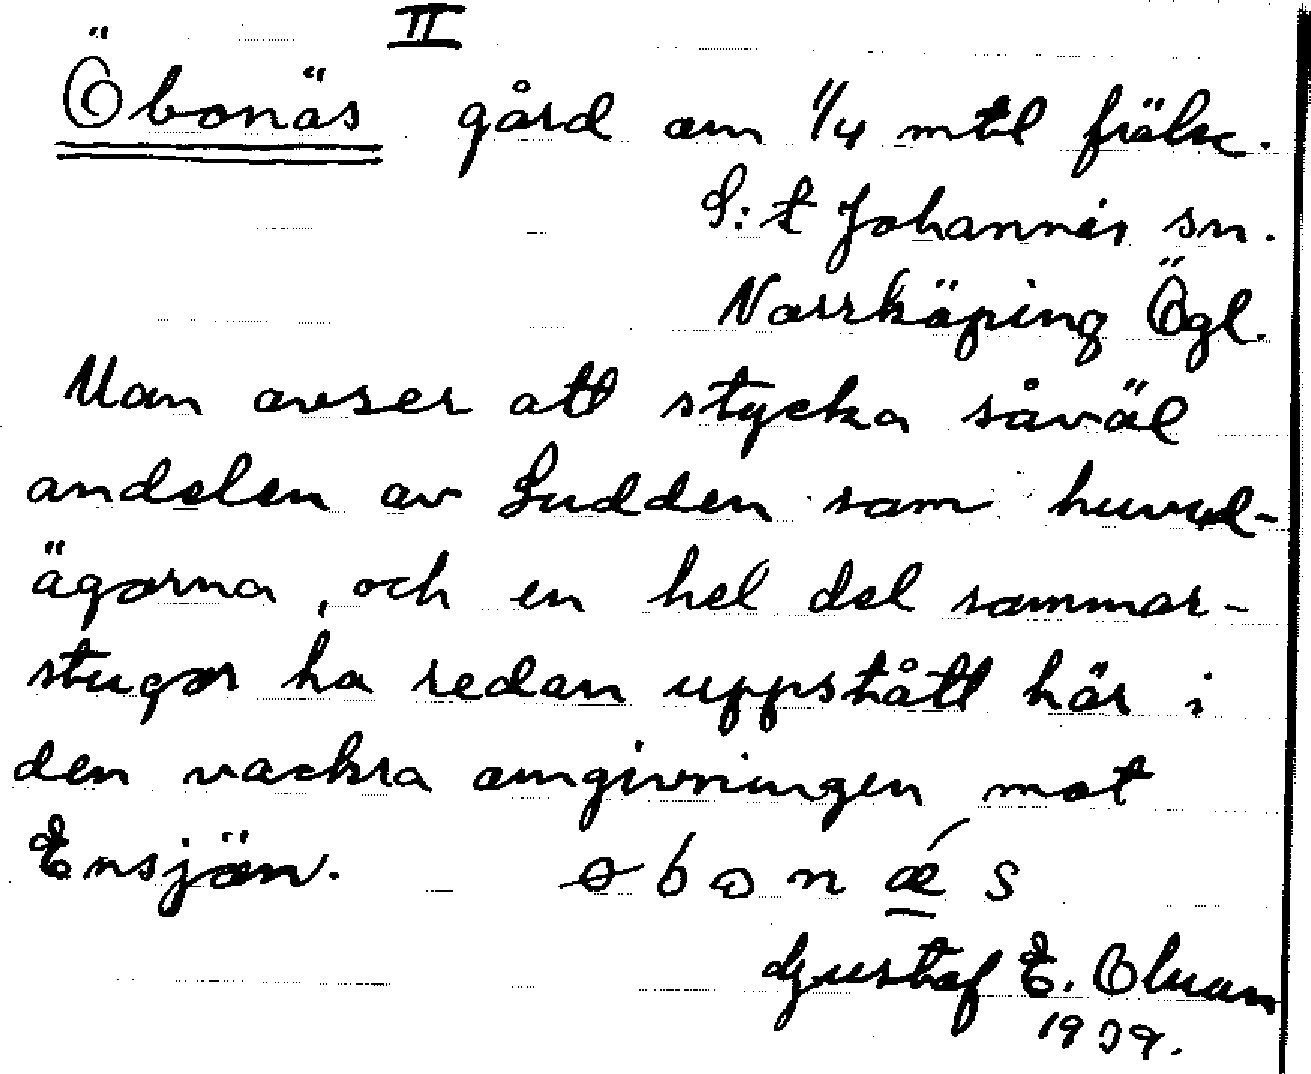 II
Öbonäs gård om 1/4 mtl frälse.
S:t Johannis sn.
Norrköping Ögl.
Man avser att stycka såväl
andelen av Sudden som huvud-
ägorna, och en hel del sommar-
stugor ha redan uppstått här i
den vackra omgivningen mot
Ensjön. øbonǽs
Gustaf E.
19